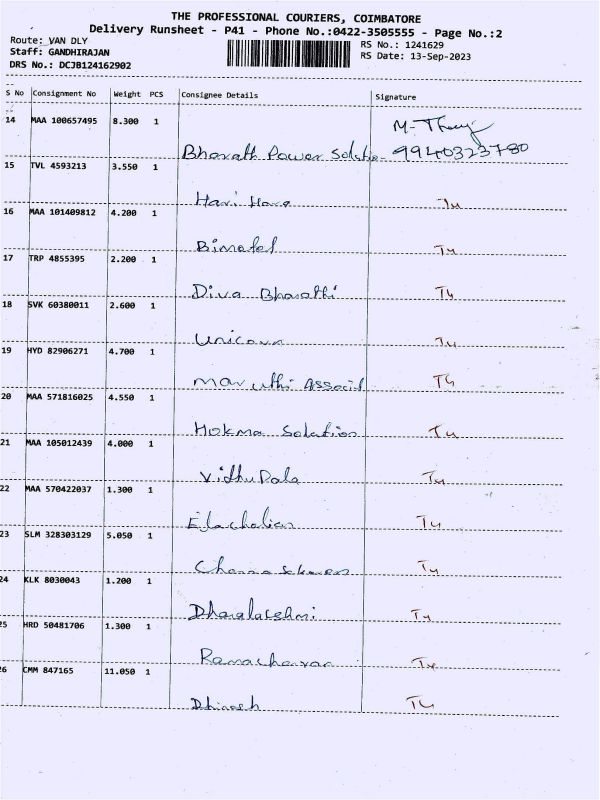 THE PROFESSIONAL COURIERS, COIMBATORE
Delivery Runsheet - P41 - Phone No.:0422-3505555 - Page No.:2
Route: VAN DLY
Staff: GANDHIRAJAN
DRS No.: DCJB124162902
RS No.: 1241629
RS Date: 13-Sep-2023
S No Consignment No Weight PCS Consignee Details Signature
14 MAA 100657495 8.300 1
Bharath Power Solutio- 9940323780
15 TVL 4593213 3.550 1
Hari Hara
16 MAA 101409812 4.200 1
Bimatel Tu
17 TRP 4855395 2.200 1
Diva Bharathi Tu
18 SVK 60380011 2.600 1
Unicorn Tu
19 HYD 82906271 4.700 1
Maruthi Associt Tu
20 MAA 571816025 4.550 1
Hokma Solution Tu
21 MAA 105012439 4.000 1
Vidhu Dala Tu
22 MAA 570422037 1.300 1
Tu
23 SLM 328303129 5.050 1
Tu
24 KLK 8030043 1.200 1
Dhanalakshmi Tu
25 HRD 50481706 1.300 1
Tu
26 CMM 847165 11.050 1
Dhinesh Tu